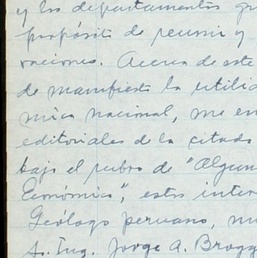 y los departamentos qu
propósito de reunir y
raciones. Acerca de este
de manifiesto la utilid
mica nacional, me en
editoriales de la citada
bajo el rubro de "Algun
Económico", estos inter
Geólogo peruano, mi
S. Ing. Jorge A. Brogg